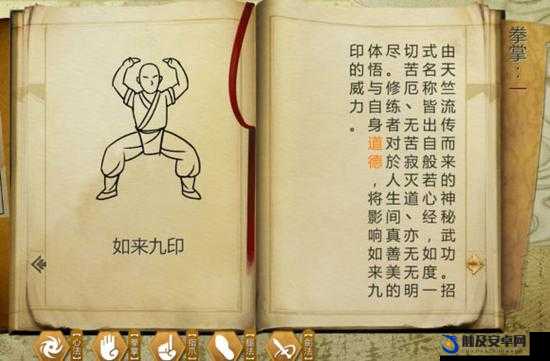 拳掌：一
由天竺流传而来的神秘武功。招
式名称皆出自般若心经，如度一
切苦厄、无苦寂灭道、亦无无明
尽。修练者对於人生间真善美的
体悟与自身道德，将影响如来九
印的威力。
如来九印
心法
拳掌
指爪
腿法
触及安卓网